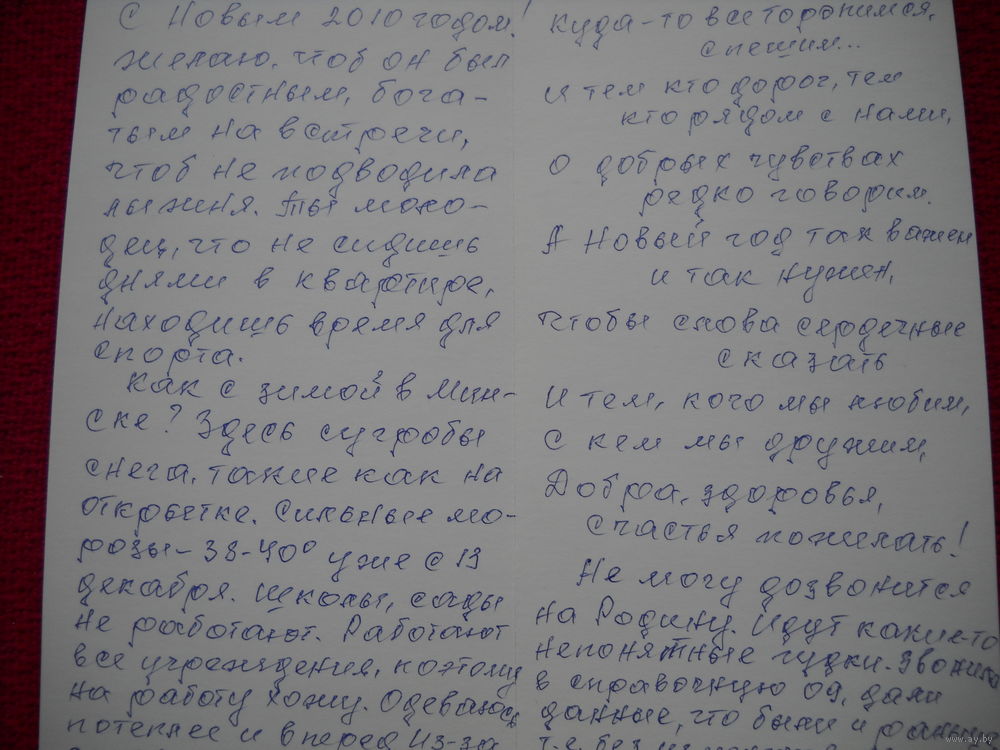 С Новым 2010 годом!
желаю, чтоб он был
радостным, бога-
тым на встречи,
чтоб не подводила
лыжня. Ты моло-
дец, что не сидишь
днями в квартире,
находишь время для
спорта.
Как с зимой в Мин-
ске? Здесь сугробы
снега, такие как на
открытке. Сильные мо-
розы - 38-40° уже с 13
декабря. Школы, сады
не работают. Работают
все учреждения, поэтому
на работу хожу. Одеваюсь
потеплее и вперед. Из-за
куда-то все торопимся,
спешим...
И тем кто дорог, тем
кто рядом с нами,
о добрых чувствах
редко говорим.
А Новый год так важен
и так нужен,
чтобы снова сердечные
сказать
И тем, кого мы любим,
с кем мы дружим,
Добра, здоровья,
счастья пожелать!
Не могу дозвонится
на Родину. Идут какие-то
непонятные гудки. Звонила
в справочную 09, дали
данные, что были и раньше
т.е. без
www.ay.by